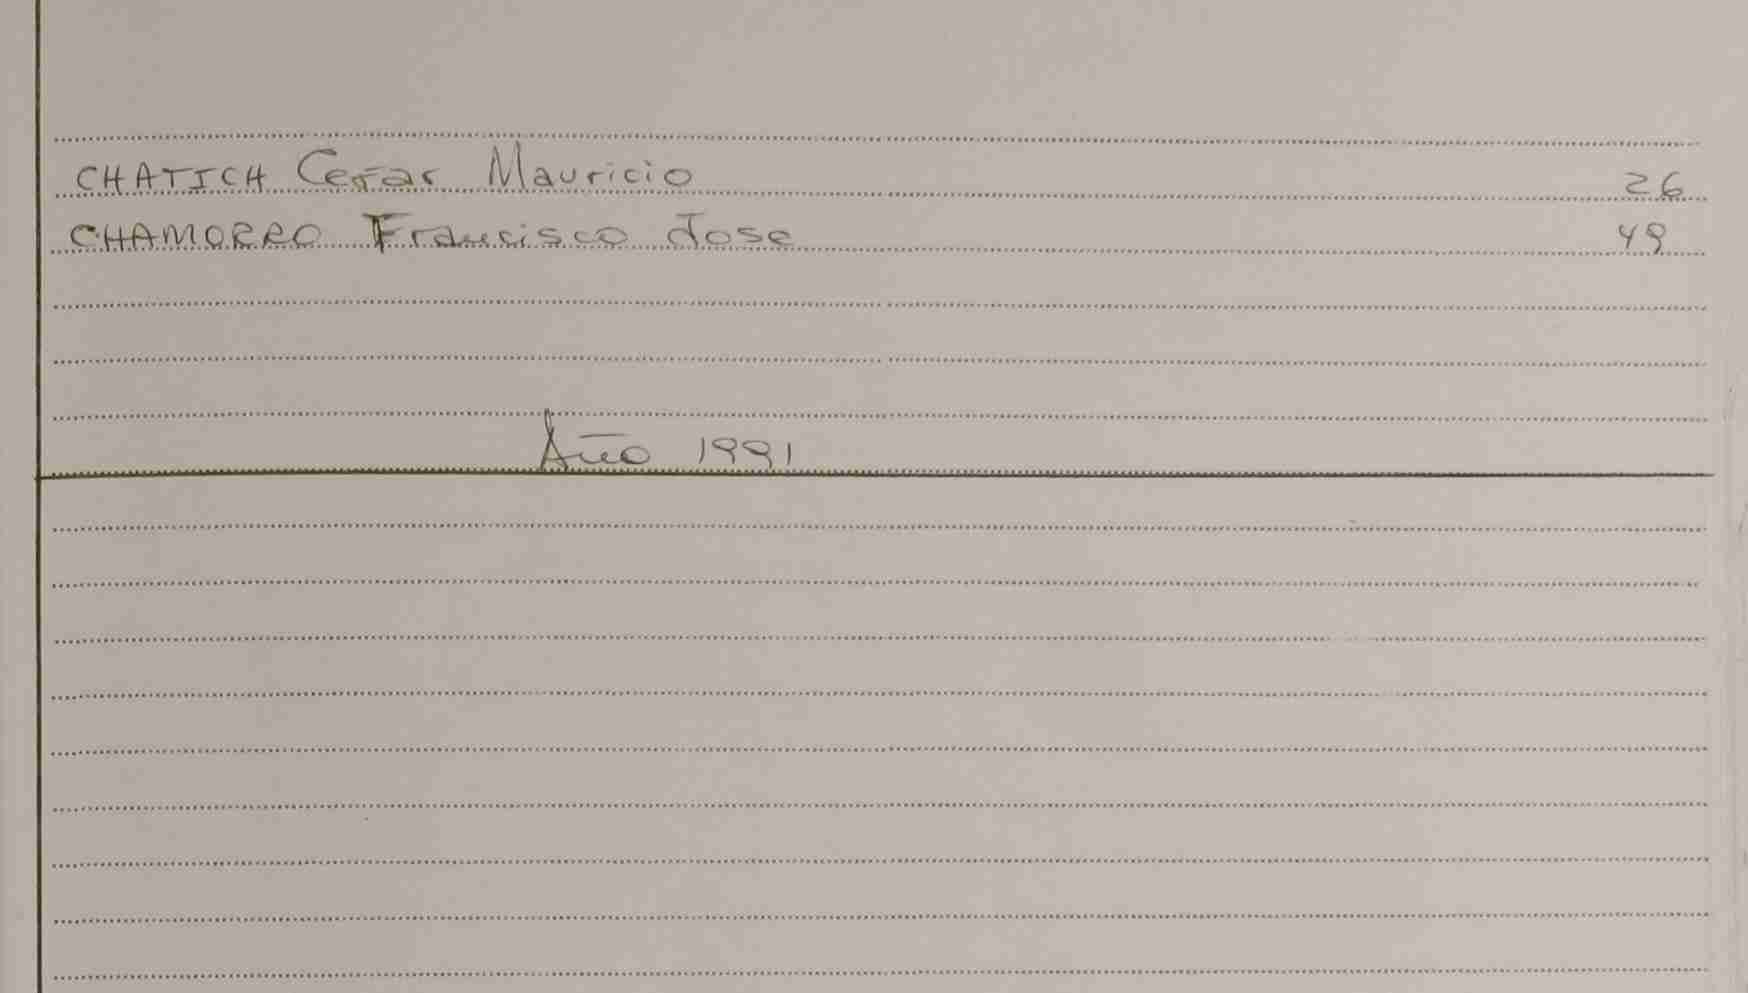 CHATICH Cesar Mauricio 26
CHAMORRO Francisco Jose 49
Año 1991